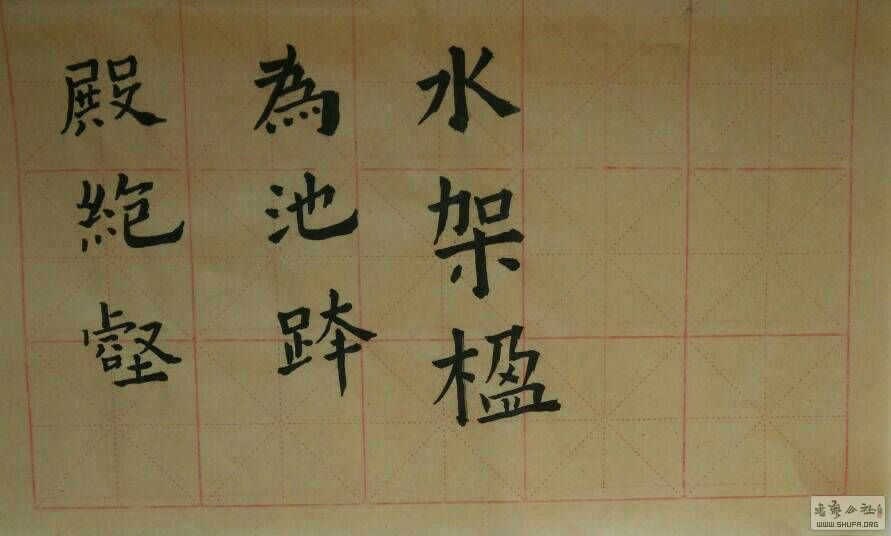 殿絕壑
為池跨
水架楹
书艺公社
WWW.SHUFA.ORG